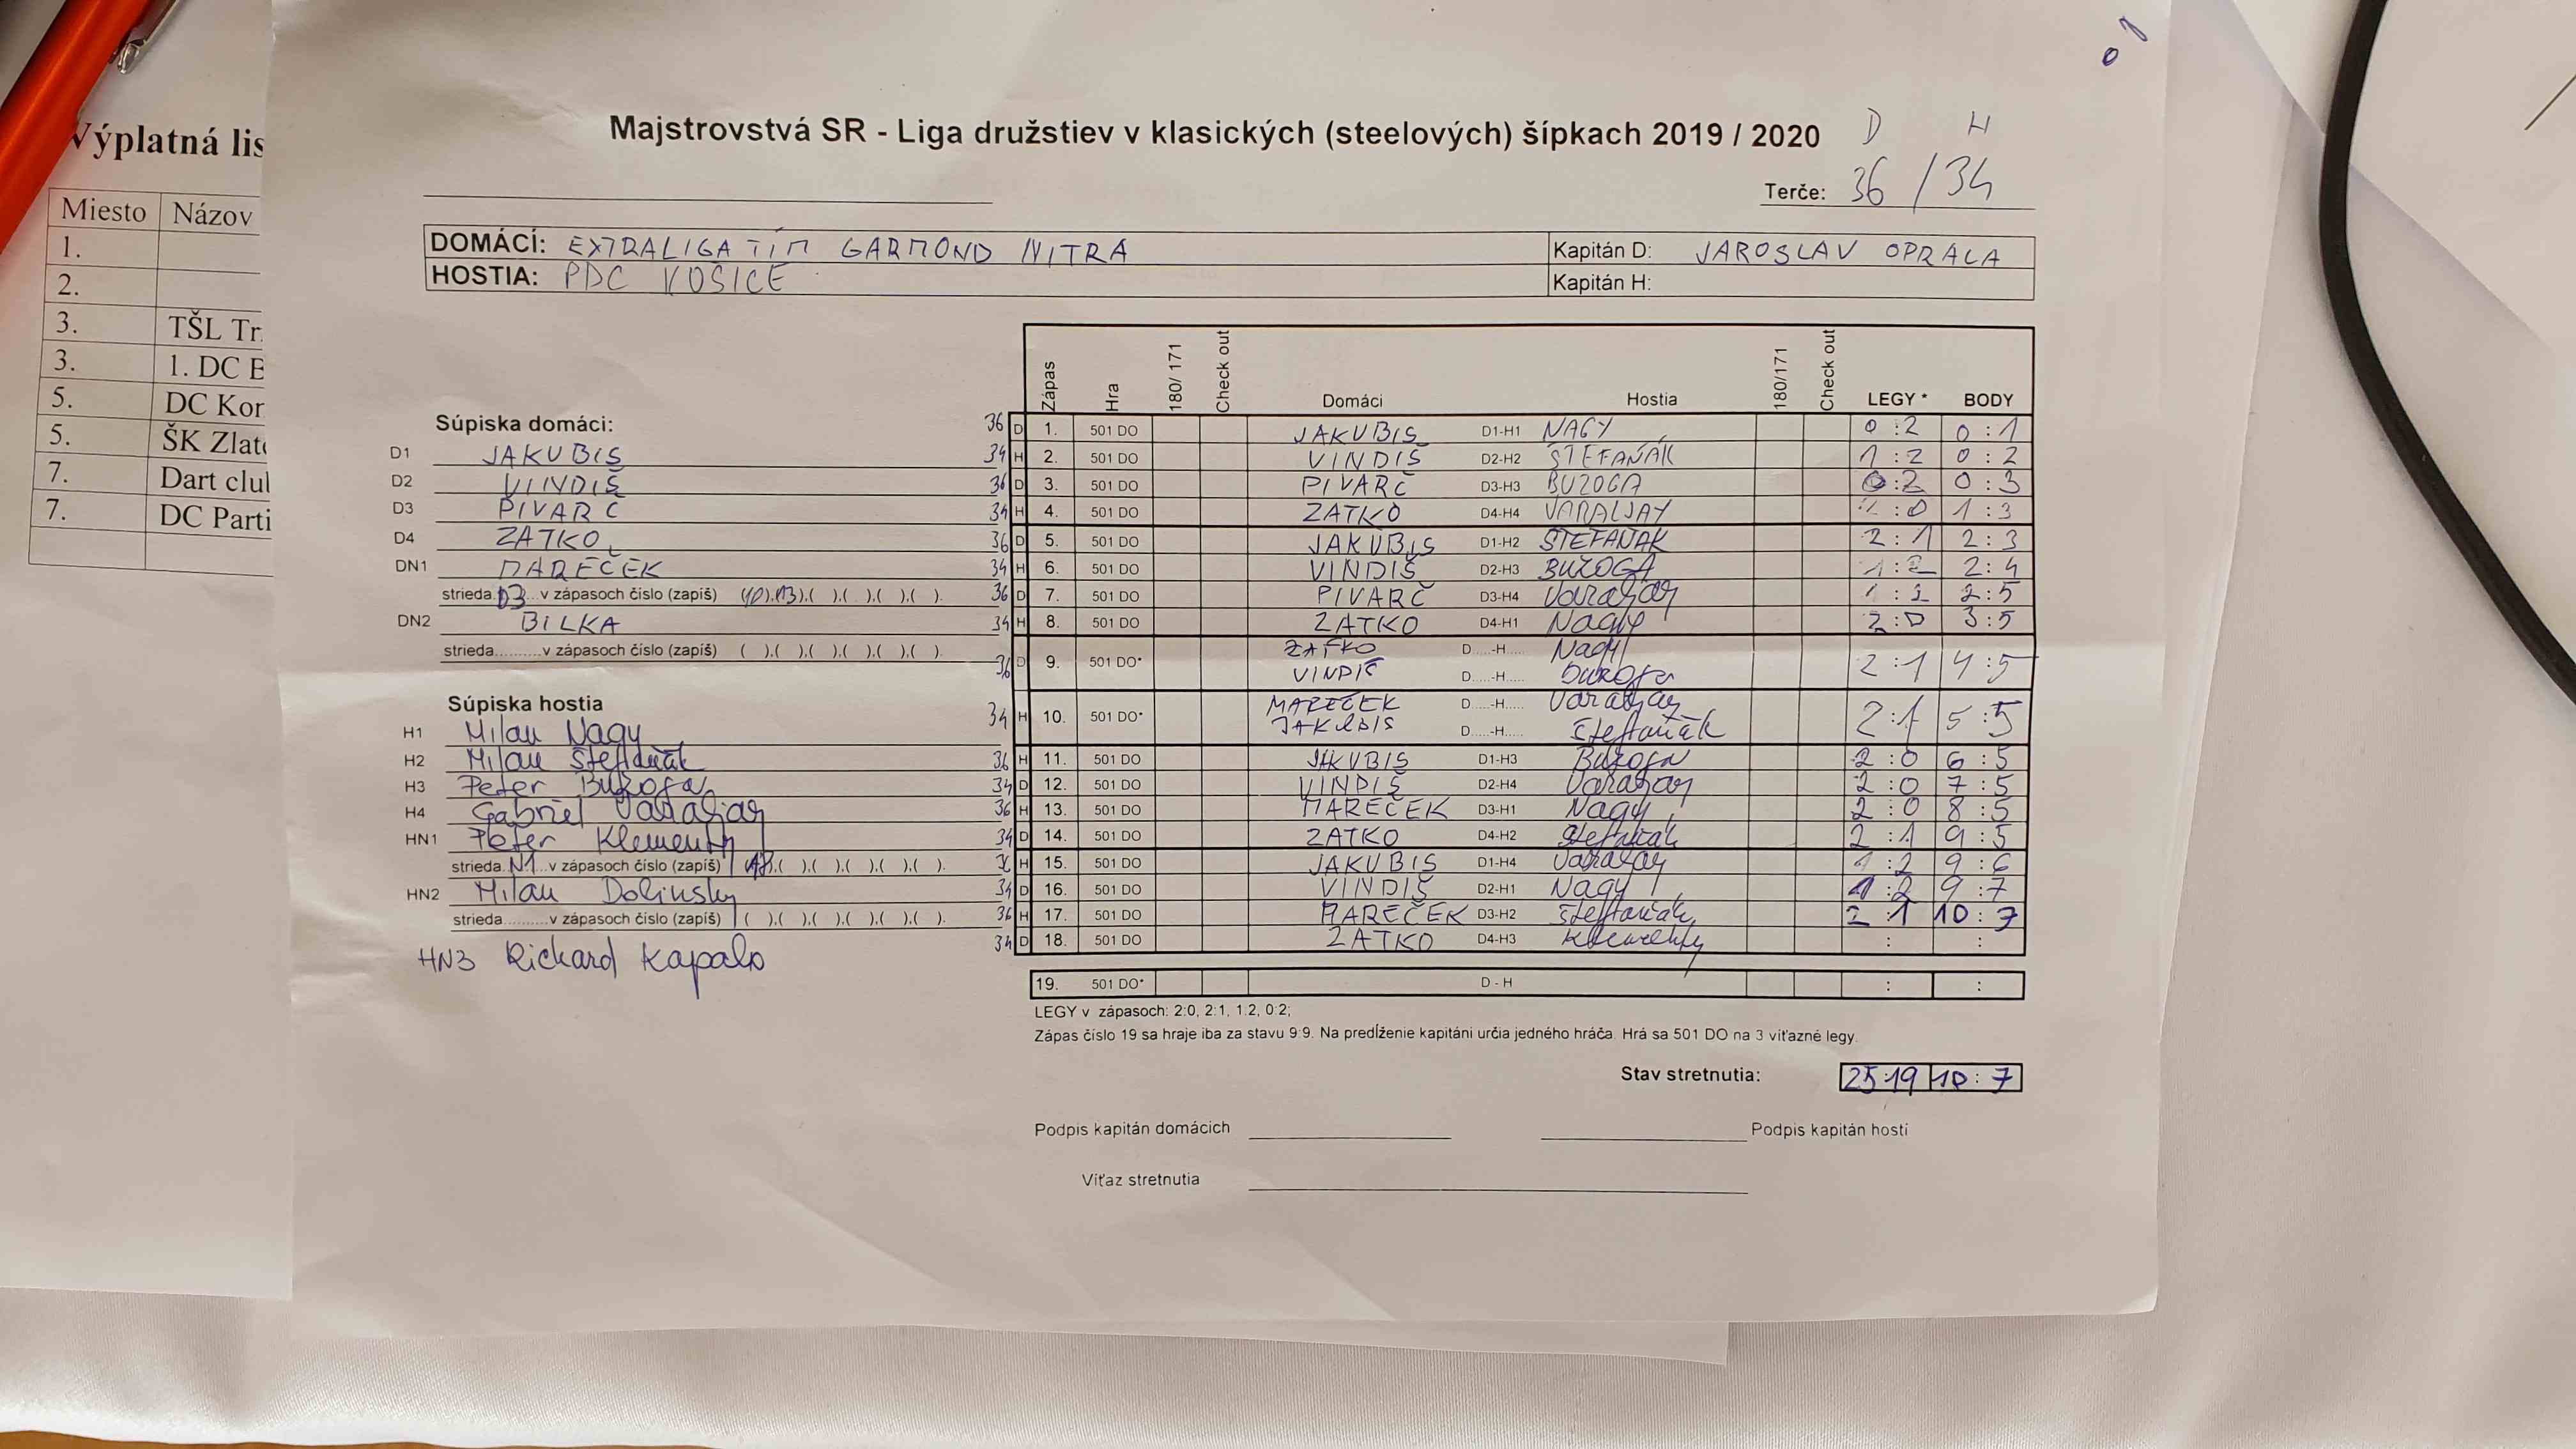 Výplatná lis
Miesto Názov
1.
2.
3. TŠL Tr
3. 1. DC B
5. DC Kor
5. ŠK Zlat
7. Dart clul
7. DC Parti
Majstrovstvá SR - Liga družstiev v klasických (steelových) šípkach 2019 / 2020
D H
Terče: 36 / 34
DOMÁCÍ: EXTRALIGA TÍM GARMOND NITRA Kapitán D: JAROSLAV OPRALA
HOSTIA: PDC KOŠICE Kapitán H:
Zápas Hra 180/ 171 Check out Domáci Hostia 180/171 Check out LEGY * BODY
Súpiska domáci:
D1 JAKUBIS
D2 VINDIŠ
D3 PIVARČ
D4 ZATKO
DN1 MAREČEK
strieda D3 v zápasoch číslo (zapíš) (10),(13),( ),( ),( ),( ).
DN2 BILKA
strieda..........v zápasoch číslo (zapíš) ( ),( ),( ),( ),( ),( ).
Súpiska hostia
H1 Milan Nagy
H2 Milan Štefaňák
H3 Peter Buzoga
H4 Gabriel Varaljay
HN1 Peter Klementy
strieda N1 v zápasoch číslo (zapíš) (18),( ),( ),( ),( ),( ).
HN2 Milan Dolinsky
strieda..........v zápasoch číslo (zapíš) ( ),( ),( ),( ),( ),( ).
HN3 Richard Kapalo
36 D 1. 501 DO JAKUBIS D1-H1 NAGY 0 : 2 0 : 1
34 H 2. 501 DO VINDIŠ D2-H2 ŠTEFAŇÁK 1 : 2 0 : 2
36 D 3. 501 DO PIVARČ D3-H3 BUZOGA 0 : 2 0 : 3
34 H 4. 501 DO ZATKO D4-H4 VARALJAY : 0 1 : 3
36 D 5. 501 DO JAKUBIS D1-H2 ŠTEFAŇAK 2 : 1 2 : 3
34 H 6. 501 DO VINDIŠ D2-H3 BUZOGA 1 : 2 2 : 4
36 D 7. 501 DO PIVARČ D3-H4 Varaljay 1 : 2 2 : 5
34 H 8. 501 DO ZATKO D4-H1 Nagy 2 : 0 3 : 5
36 D 9. 501 DO* ZATKO D.....-H..... Nagy 2 : 1 4 : 5
VINDIŠ D.....-H..... Buzoga
34 H 10. 501 DO* MAREČEK D.....-H..... Varaljay 2 : 1 5 : 5
JAKUBIS D.....-H..... Štefaňák
36 H 11. 501 DO JAKUBIS D1-H3 Buzoga 2 : 0 6 : 5
34 D 12. 501 DO VINDIŠ D2-H4 Varaljay 2 : 0 7 : 5
36 H 13. 501 DO MAREČEK D3-H1 Nagy 2 : 0 8 : 5
34 D 14. 501 DO ZATKO D4-H2 Štefaňák 2 : 1 9 : 5
36 H 15. 501 DO JAKUBIS D1-H4 Varaljay 1 : 2 9 : 6
34 D 16. 501 DO VINDIŠ D2-H1 Nagy 1 : 2 9 : 7
36 H 17. 501 DO MAREČEK D3-H2 Štefaňák 2 : 1 10 : 7
34 D 18. 501 DO ZATKO D4-H3 Klementy : :
19. 501 DO* D - H : :
LEGY v zápasoch: 2:0, 2:1, 1:2, 0:2;
Zápas číslo 19 sa hraje iba za stavu 9:9. Na predĺženie kapitáni určia jedného hráča. Hrá sa 501 DO na 3 víťazné legy.
Stav stretnutia: 25:19 10 : 7
Podpis kapitán domácich Podpis kapitán hostí
Víťaz stretnutia